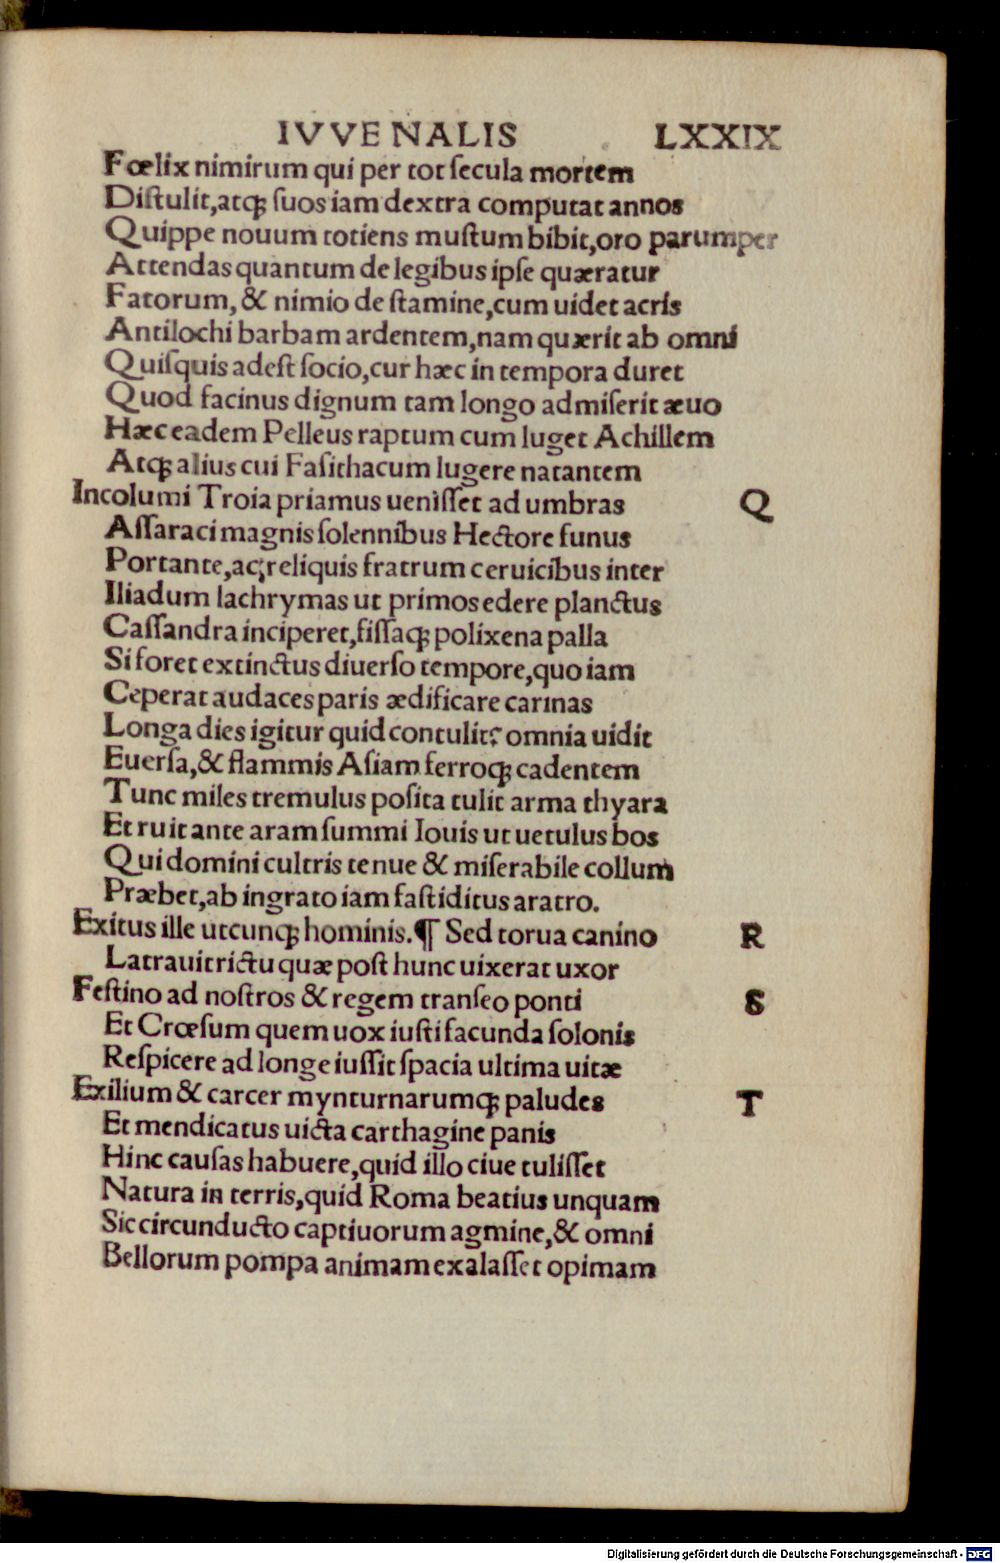 IVVENALIS LXXIX
Fœlix nimirum qui per tot ſecula mortem
Diſtulit,atq; ſuos iam dextra computat annos
Quippe nouum totiens muſtum bibit,oro parumper
Attendas quantum de legibus ipſe quæratur
Fatorum, & nimio de ſtamine,cum uidet acris
Antilochi barbam ardentem,nam quærit ab omni
Quiſquis adeſt ſocio,cur hæc in tempora duret
Quod facinus dignum tam longo admiſerit æuo
Hæc eadem Pelleus raptum cum luget Achillem
Atq; alius cui Faſithacum lugere natantem
Incolumi Troia priamus ueniſſet ad umbras Q
Aſſaraci magnis ſolennibus Hectore funus
Portante,ac reliquis fratrum ceruicibus inter
Iliadum lachrymas ut primos edere planctus
Caſſandra inciperet,ſiſſaq; polixena palla
Si foret extinctus diuerſo tempore,quo iam
Ceperat audaces paris ædificare carinas
Longa dies igitur quid contulit? omnia uidit
Euerſa,& flammis Aſiam ferroq; cadentem
Tunc miles tremulus poſita tulit arma thyara
Et ruit ante aram ſummi Iouis ut uetulus bos
Qui domini cultris tenue & miſerabile collum
Præbet,ab ingrato iam faſtiditus aratro.
Exitus ille utcunq; hominis.¶ Sed torua canino R
Latrauit rictu quæ poſt hunc uixerat uxor
Feſtino ad noſtros & regem tranſeo ponti S
Et Crœſum quem uox iuſti facunda ſolonis
Reſpicere ad longe iuſſit ſpacia ultima uitæ
Exilium & carcer mynturnarumq; paludes T
Et mendicatus uicta carthagine panis
Hinc cauſas habuere,quid illo ciue tuliſſet
Natura in terris,quid Roma beatius unquam
Sic circunducto captiuorum agmine,& omni
Bellorum pompa animam exalaſſet opimam
Digitalisierung gefördert durch die Deutsche Forschungsgemeinschaft - DFG